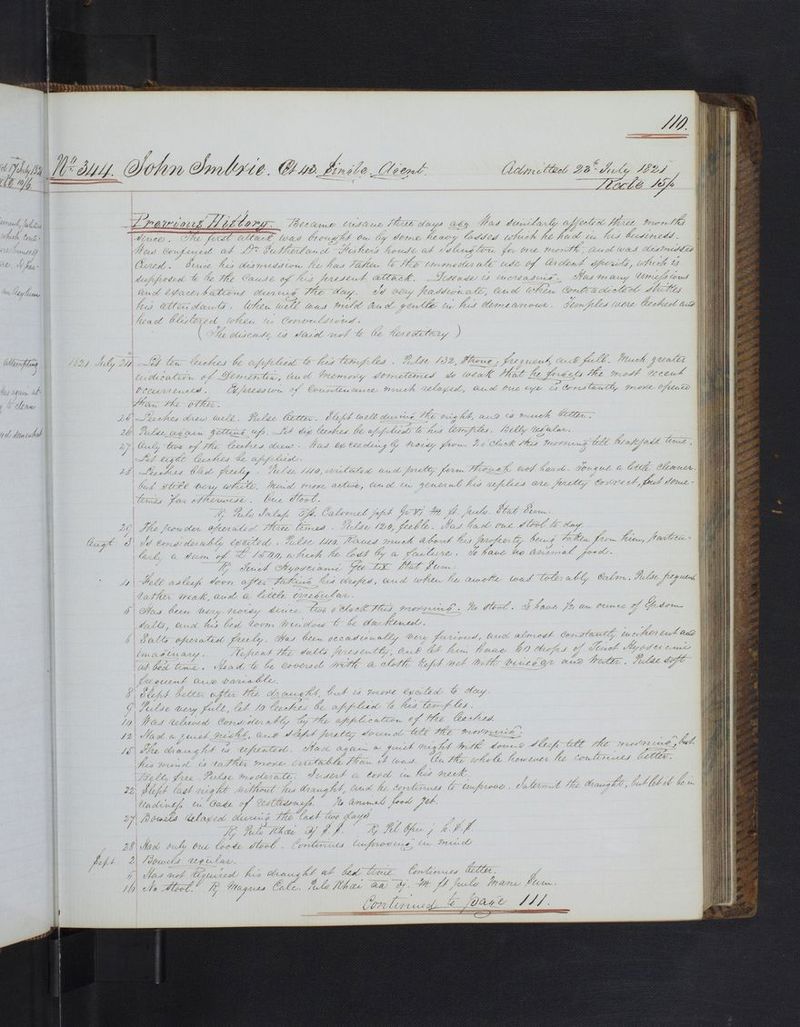 110.
No. 344. John Imbrie. Æt 43. Single. Agent. Admitted 23d July 1821
Rate 15/
Previous History. Became insane three days ago. Was similarly affected three months
since. The first attack was brought on by some heavy losses which he had in his business.
Was confined at Dr. Sutherland house at Islington for one month, and was dismissed
Cured. Since his dismission he has taken to the immoderate use of Ardent spirits, which is
supposed to be the cause of his present attack. Disease is increasing. Has many remissions
and exacerbations during the day. Is very passionate, and when contradicted strikes
his attendants. When well was mild and gentle in his demeanour. Temples were leeched and
head blistered when in
(The disease, is said not to be hereditary)
1821 July 24 Let ten leeches be applied to his temples. Pulse 132, strong, frequent, and full. Much greater
indication of Dementia, and Memory sometimes so weak that he forgets the most recent
occurrences. Expression of Countenance much relaxed, and one eye is constantly more opened
than the other.
25 Leeches drew well. Pulse better. Slept well during the night, and is much better.
26 Pulse again getting up. Let six leeches be applied to his temples. Belly regular.
27 Only two of the leeches drew. Was exceedingly noisy from 2 o'Clock this morning till breakfast time.
Let eight leeches be applied.
28 Leeches bled freely. Pulse 140, irritated and pretty firm though not hard. Tongue a little cleaner
but still very white. Mind more active, and in general his replies are pretty correct, but some-
times far otherwise. One Stool.
℞ Pulv Jalap Calomel ppt Gr vi M ft pulv Stat Sum.
29 The powder operated three times. Pulse 120, feeble. Has had one stool to day
Augt 3 Is considerably excited. Pulse 140, Raves much about his property being taken from him, particu-
larly a sum of £1590, which he lost by a failure. To have no animal food.
℞ Tinct Hyosciami Stat Sum.
4 Fell asleep soon after taking his drops, and when he awoke was tolerably calm. Pulse frequent
rather weak, and a little irregular.
5 Has been very noisy since two o'clock this morning. No stool. To have ½ an ounce of Epsom
salts, and his bed room windows to be darkened.
6 Salts operated freely. Has been occasionally very furious, and almost constantly incoherent and
imaginary. Repeat the salts presently, and let him have 60 drops of Tinct Hyosciami
at bed time. Head to be covered with a cloth kept wet with vinegar and Water. Pulse soft
frequent and variable.
8 Slept better after the draught, but is more excited to day.
9 Pulse very full, let 10 leeches be applied to his temples.
10 Was relieved considerably by the application of the leeches.
12 Had a quiet night, and slept pretty sound till the morning.
15 The draught is repeated. Had again a quiet night with sound sleep till the morning, but
his mind is rather more irritable than it was. On the whole however he continues better.
Belly free. Pulse moderate. Insert a cord in his neck.
22 Slept last night without his draught, and he continues to improve. Intermit the draught, but let it be in
readiness in case of restlessness. No animal food yet.
27 Bowels relaxed during the last two days
℞ Pulv Rhæi ℞ Pil Opii j
28 Had only one loose stool. Continues improving in mind
Sept 2 Bowels regular.
5 Has not required his draught at bed time. Continues better.
10 No stool. ℞ Magnes Calc. Pulv Rhæi aa M ft pulv Mane Sum.
Continued to page 111.